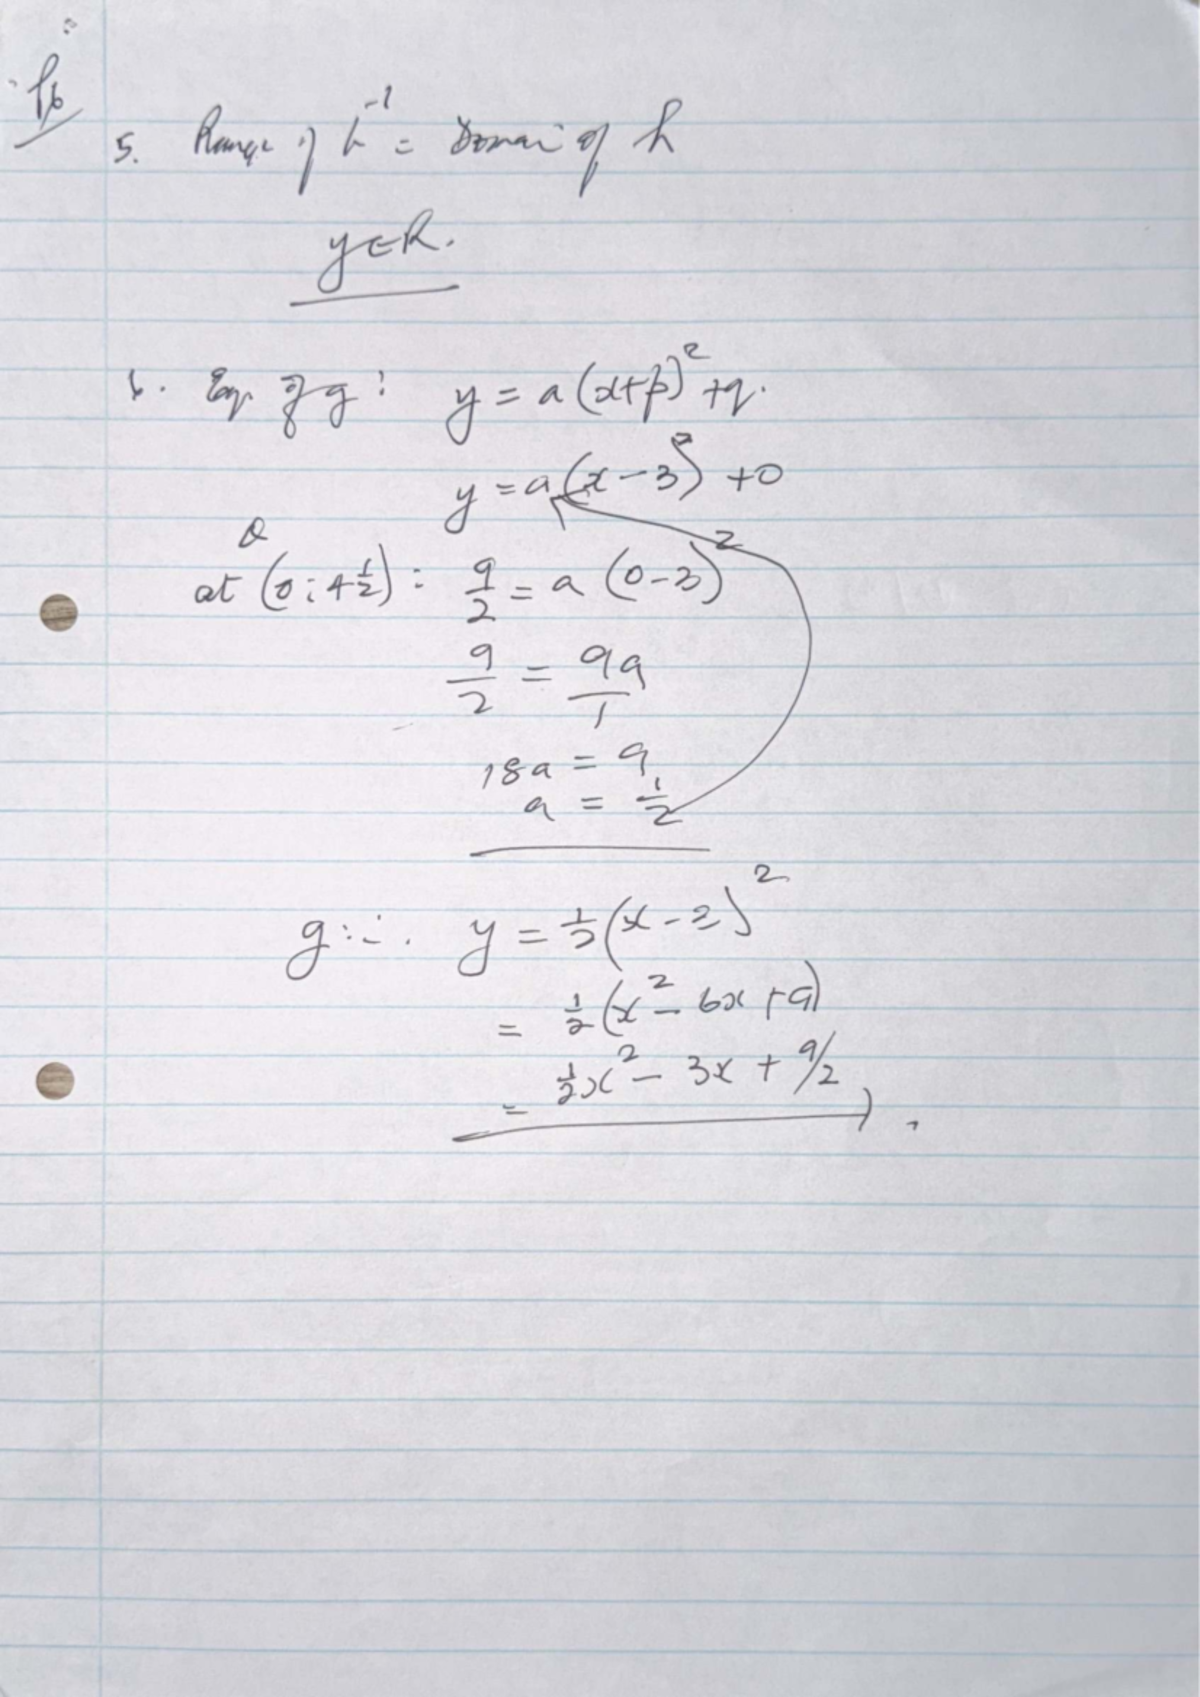 P6
5. Range of h⁻¹ = Domain of h
y ∈ R.
6. Eq. of g : y = a(x+p)² + q.
y = a(x-3)² + 0
Q
at (0; 4½) : 9/2 = a (0-3)²
9/2 = 9a/1
18a = 9
a = 1/2
g: ∴ y = ½(x-3)²
= ½(x² - 6x + 9)
= ½x² - 3x + 9/2